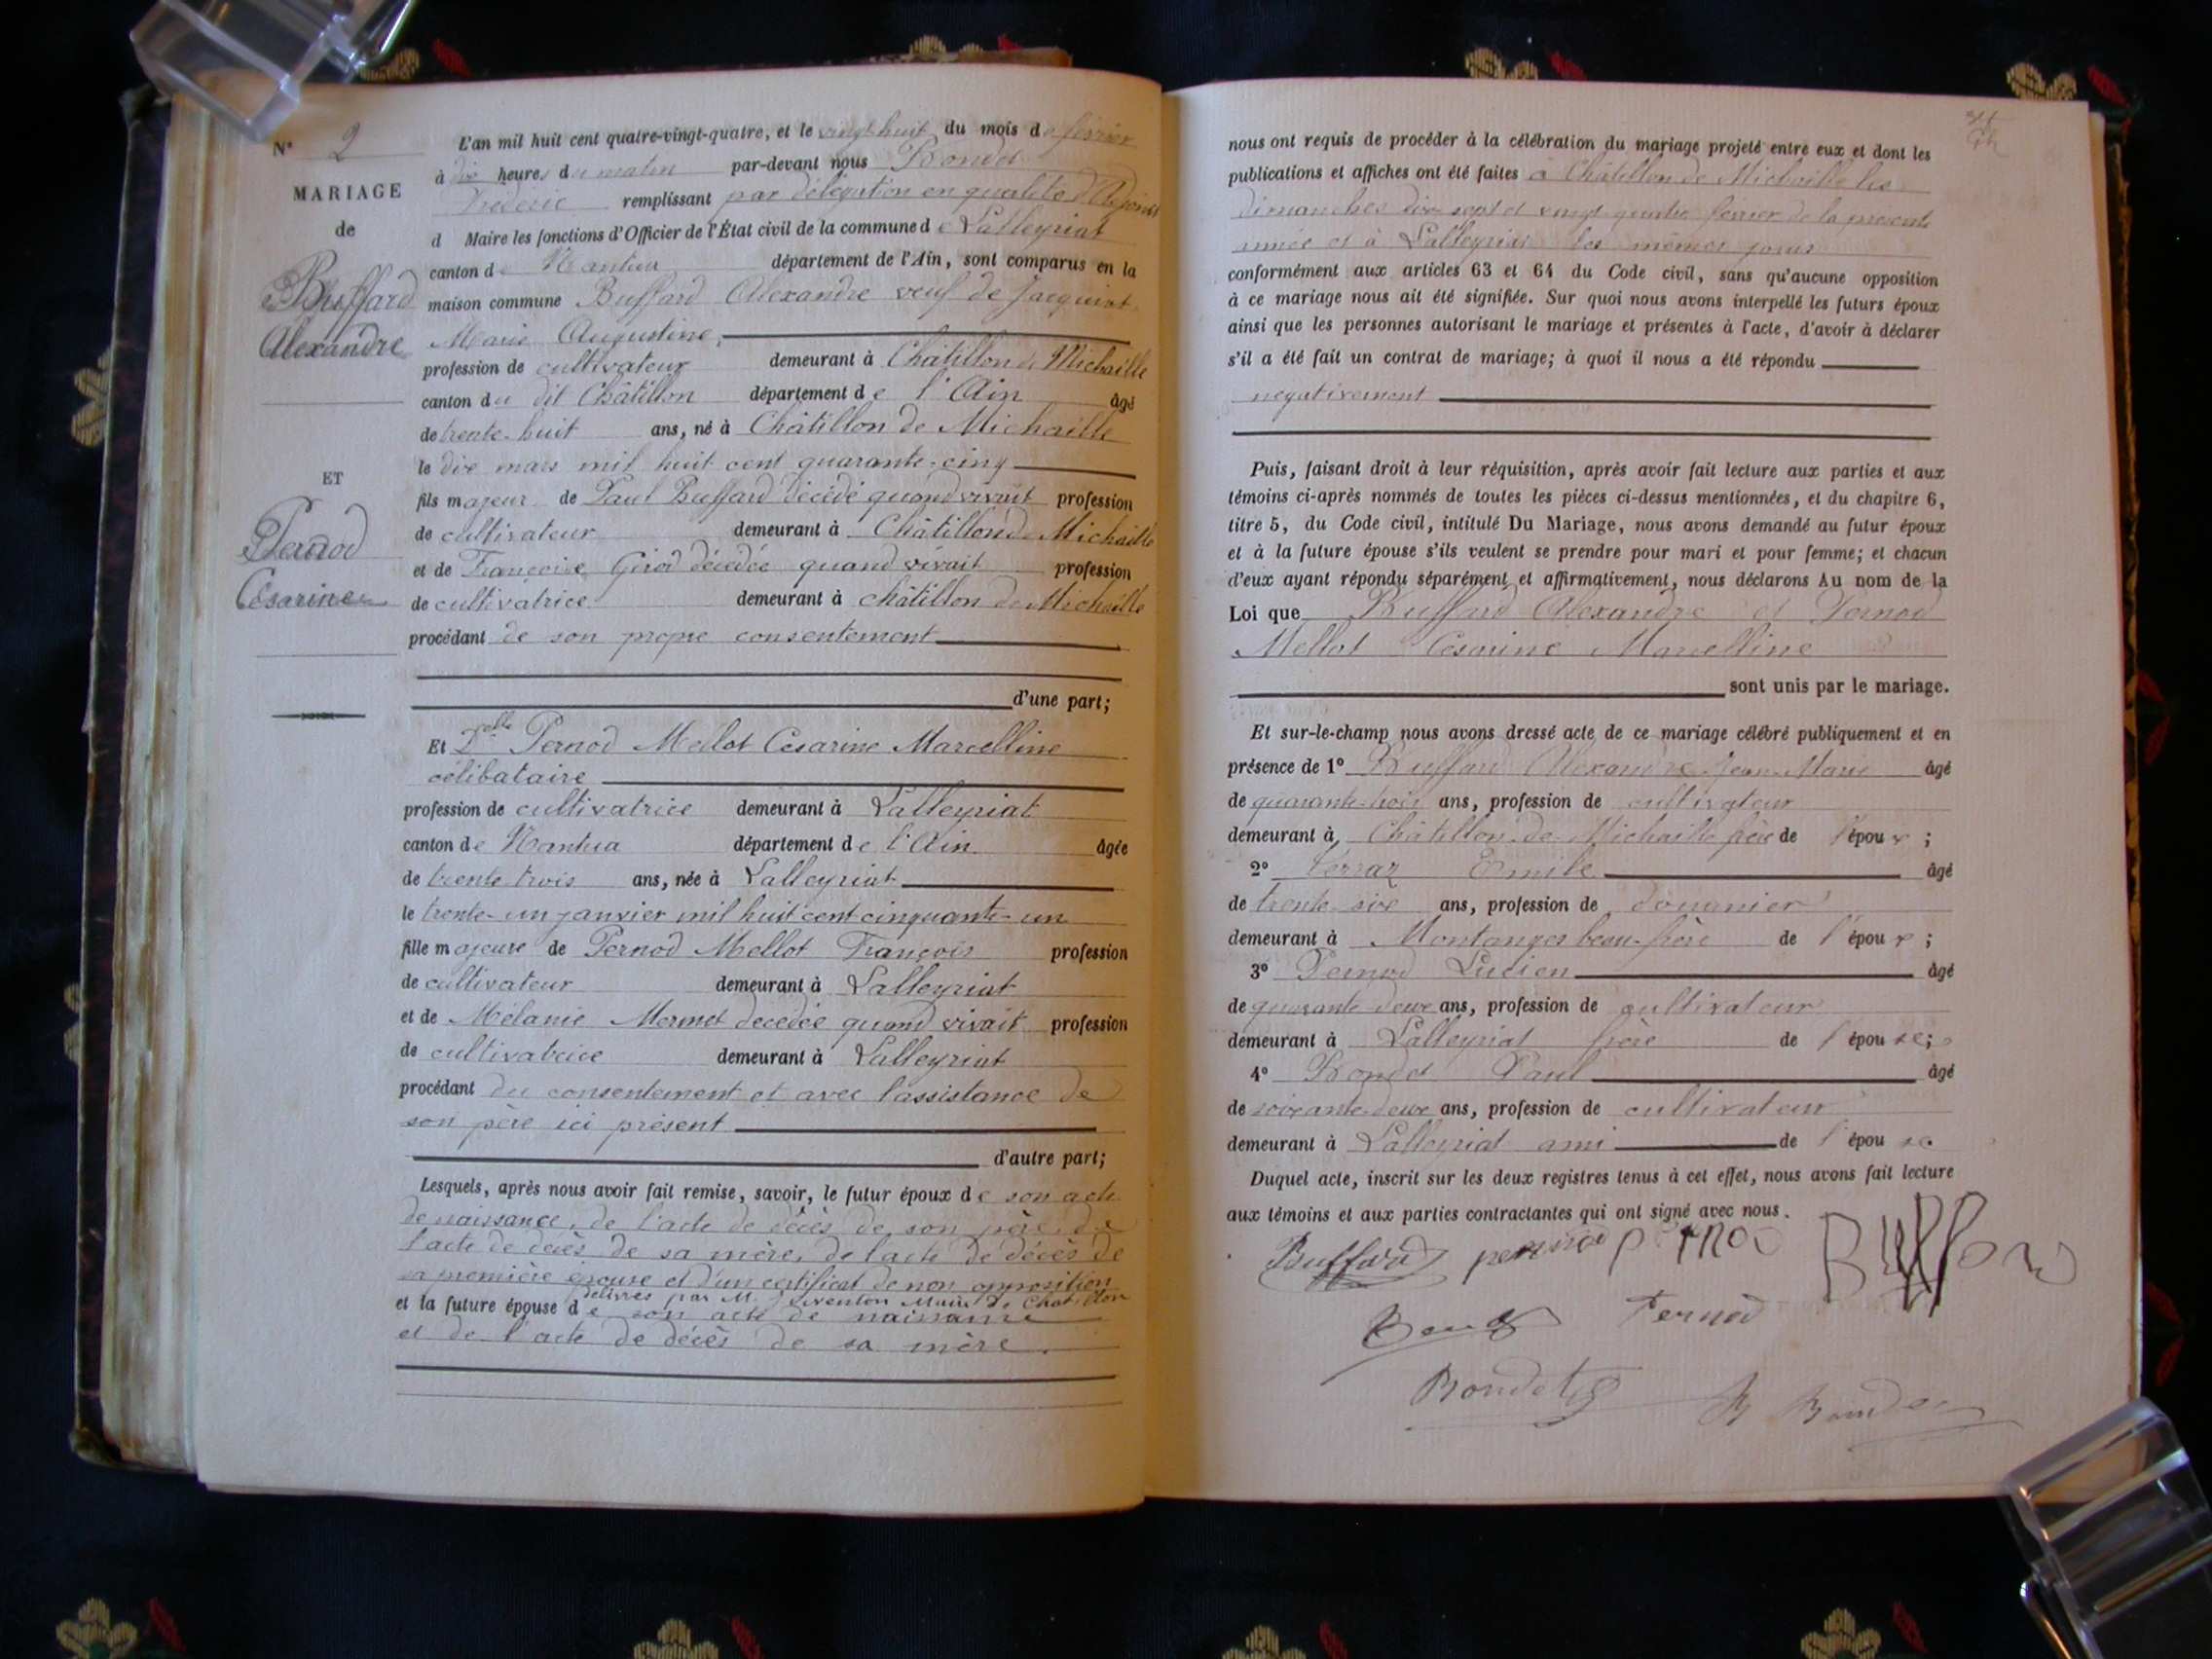 N° 2
MARIAGE
de
Buffard
Alexandre
ET
Pernod
Césarine
L'an mil huit cent quatre-vingt-quatre, et le vingt huit du mois de février
à dix heures du matin par-devant nous Rondet
Frédéric remplissant par délégation en qualité d'Adjoint
d Maire les fonctions d'Officier de l'État civil de la commune de Lalleyriat
canton de Nantua département de l'Ain, sont comparus en la
maison commune Buffard Alexandre veuf de Jacquinot
Marie Augustine,
profession de cultivateur demeurant à Châtillon de Michaille
canton du dit Châtillon département de l'Ain âgé
de trente-huit ans, né à Châtillon de Michaille
le dix mars mil huit cent quarante-cinq
fils majeur de Paul Buffard décédé quand vivait profession
de cultivateur demeurant à Châtillon de Michaille
et de Françoise Girod décédée quand vivait profession
de cultivatrice demeurant à châtillon de Michaille
procédant de son propre consentement
d'une part;
Et Delle Pernod Mellot Cesarine Marcelline
célibataire
profession de cultivatrice demeurant à Lalleyriat
canton de Nantua département de l'Ain âgée
de trente trois ans, née à Lalleyriat
le trente-un janvier mil huit cent cinquante-un
fille majeure de Pernod Mellot François profession
de cultivateur demeurant à Lalleyriat
et de Mélanie Mermet decedée quand vivait profession
de cultivatrice demeurant à Lalleyriat
procédant du consentement et avec l'assistance de
son père ici présent
d'autre part;
Lesquels, après nous avoir fait remise, savoir, le futur époux de son acte
de naissance, de l'acte de décès de son père, de
l'acte de décès de sa mère, de l'acte de décès de
sa première épouse et d'un certificat de non opposition
délivré par M. Maire de Chatillon
et la future épouse de son acte de naissance
et de l'acte de décès de sa mère.
nous ont requis de procéder à la célébration du mariage projeté entre eux et dont les
publications et affiches ont été faites à Châtillon de Michaille les
dimanches dix sept et vingt-quatre février de la présente
année et à Lalleyriat les mêmes jours
conformément aux articles 63 et 64 du Code civil, sans qu'aucune opposition
à ce mariage nous ait été signifiée. Sur quoi nous avons interpellé les futurs époux
ainsi que les personnes autorisant le mariage et présentes à l'acte, d'avoir à déclarer
s'il a été fait un contrat de mariage; à quoi il nous a été répondu
negativement
Puis, faisant droit à leur réquisition, après avoir fait lecture aux parties et aux
témoins ci-après nommés de toutes les pièces ci-dessus mentionnées, et du chapitre 6,
titre 5, du Code civil, intitulé Du Mariage, nous avons demandé au futur époux
et à la future épouse s'ils veulent se prendre pour mari et pour femme; et chacun
d'eux ayant répondu séparément et affirmativement, nous déclarons Au nom de la
Loi que Buffard Alexandre et Pernod
Mellot Cesarine Marcelline
sont unis par le mariage.
Et sur-le-champ nous avons dressé acte de ce mariage célébré publiquement et en
présence de 1° Buffard Alexandre Jean-Marie âgé
de quarante-trois ans, profession de cultivateur
demeurant à Châtillon-de-Michaille frère de l'époux;
2° Verraz Emile âgé
de trente-six ans, profession de douanier
demeurant à Montanges beau-frère de l'époux;
3° Pernod Lucien âgé
de quarante-deux ans, profession de cultivateur
demeurant à Lalleyriat frère de l'épouse;
4° Rondet Paul âgé
de soixante-deux ans, profession de cultivateur
demeurant à Lalleyriat ami de l'épouse
Duquel acte, inscrit sur les deux registres tenus à cet effet, nous avons fait lecture
aux témoins et aux parties contractantes qui ont signé avec nous.
Buffard pernod pernod Buffard
Pernod
Rondet Rondet